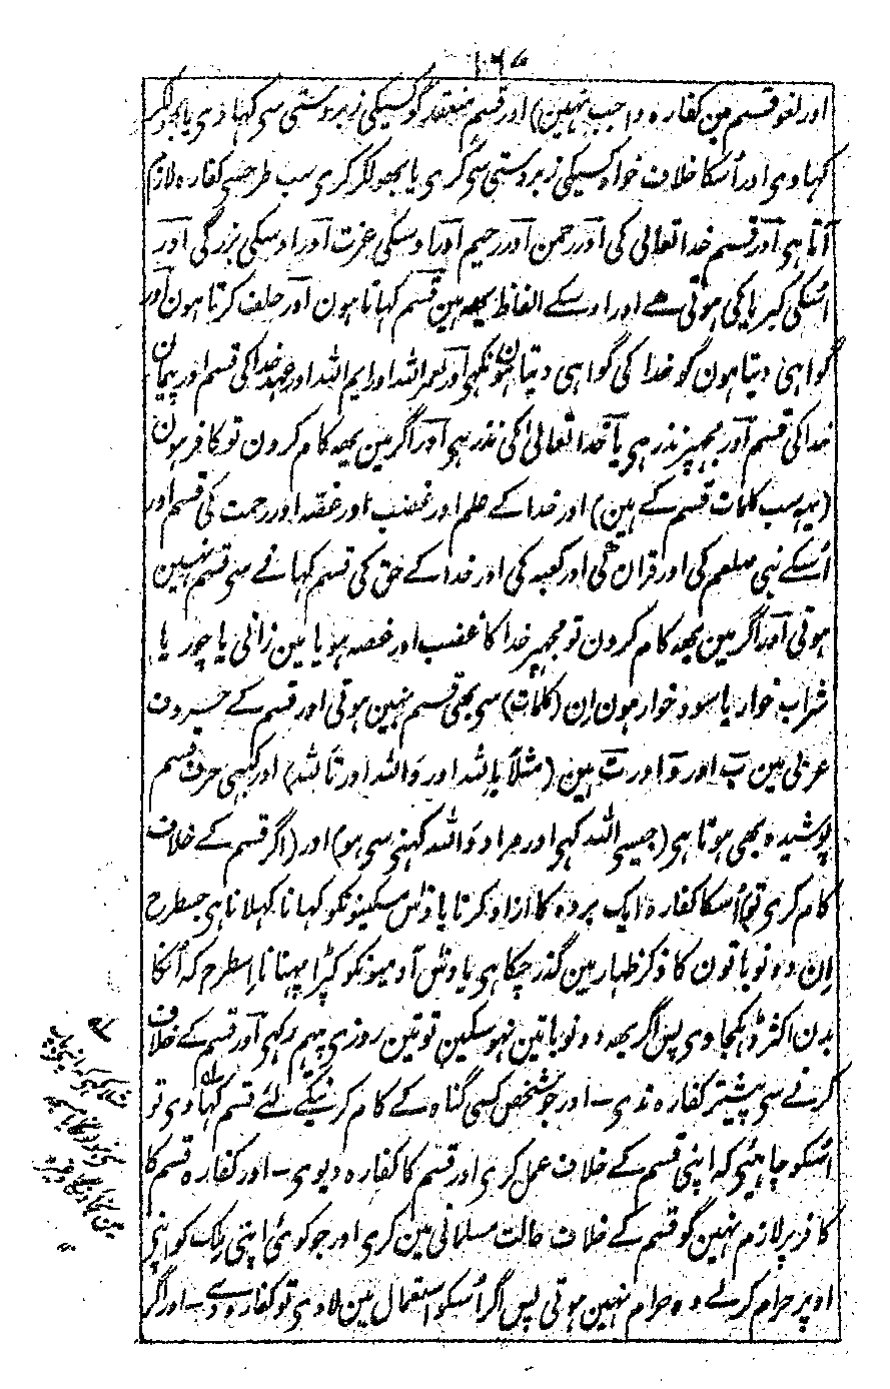 ۱۶۷
اور لغو قسم مین کفارہ واجب نہین) اور قسم منعقد گو کسیکی زبردستی سی کہاوی یا بھولکر
کہاوی اور اُسکا خلاف خواہ کسیکی زبردستی سی کری یا بھولکر کری سب طرحسی کفارہ لازم
آتا ہی اور قسم خدا تعالی کی اور رحمن اور رحیم اور اوسکی عزت اور اوسکی بزرگی اور
اُسکی کبریا کی ہوتی ہے اور اوسکے الفاظ یھہ ہین قسم کہاتا ہون اور حلف کرتا ہون اور
گواہی دیتا ہون گو خدا کی گواہی دیتا ہون نکہی اور لعمر اللہ اور ایم اللہ اور عہد خدا کی قسم اور پیمان
خدا کی قسم اور مجہپر نذر ہی یا خدا تعالیٰ کی نذر ہی اور اگر مین یھہ کام کرون تو کافر ہون
(یہہ سب کلمات قسم کے ہین) اور خدا کے علم اور غضب اور غصّہ اور رحمت کی قسم اور
اُسکے نبی صلعم کی اور قران کی اور کعبہ کی اور خدا کے حق کی قسم کہانے سی قسم نہین
ہوتی اور اگر مین یھہ کام کرون تو مجہپر خدا کا غضب اور غصہ ہو یا مین زانی یا چور یا
شراب خوار یا سود خوار ہون اِن (کلمات) سی بھی قسم نہین ہوتی اور قسم کے حروف
عربی مین ب اور و اور ت ہین (مثلاً باللہ اور واللہ اور تاللہ) اور کبہی حرف قسم
پوشیدہ بھی ہوتا ہی (جیسی اللہ کہی اور مراد واللہ کہنی سی ہو) اور (اگر قسم کے خلاف
کام کری تو) اُسکا کفارہ ایک بردہ کا ازاد کرنا یا دس مسکینونکو کہانا کہلانا ہی جسطرح
اِن دونو باتون کا ذکر ظہار مین گذر چکا ہی یا دس آدمیونکو کپڑا پہنانا اِسطرح کہ اُنکا
بدن اکثر ڈہکجاوی پس اگر یھہ دونو باتین نہوسکین تو تین روزی پیہم رکہی اور قسم کے خلاف
کرنے سی پیشتر کفارہ ندی۔ اور جو شخص کسی گناہ کے کام کرنیکے لئے قسم کہاوی تو
اُسکو چاہیئی کہ اپنی قسم کے خلاف عمل کری اور قسم کا کفارہ دیوی۔ اور کفارہ قسم کا
کافر پر لازم نہین گو قسم کے خلاف حالت مسلمانی مین کری اور جو کوئی اپنی مِلک کو اپنی
اوپر حرام کرلے وہ حرام نہین ہوتی پس اگر اُسکو استعمال مین لاوی تو کفارہ دے۔ اور اگر